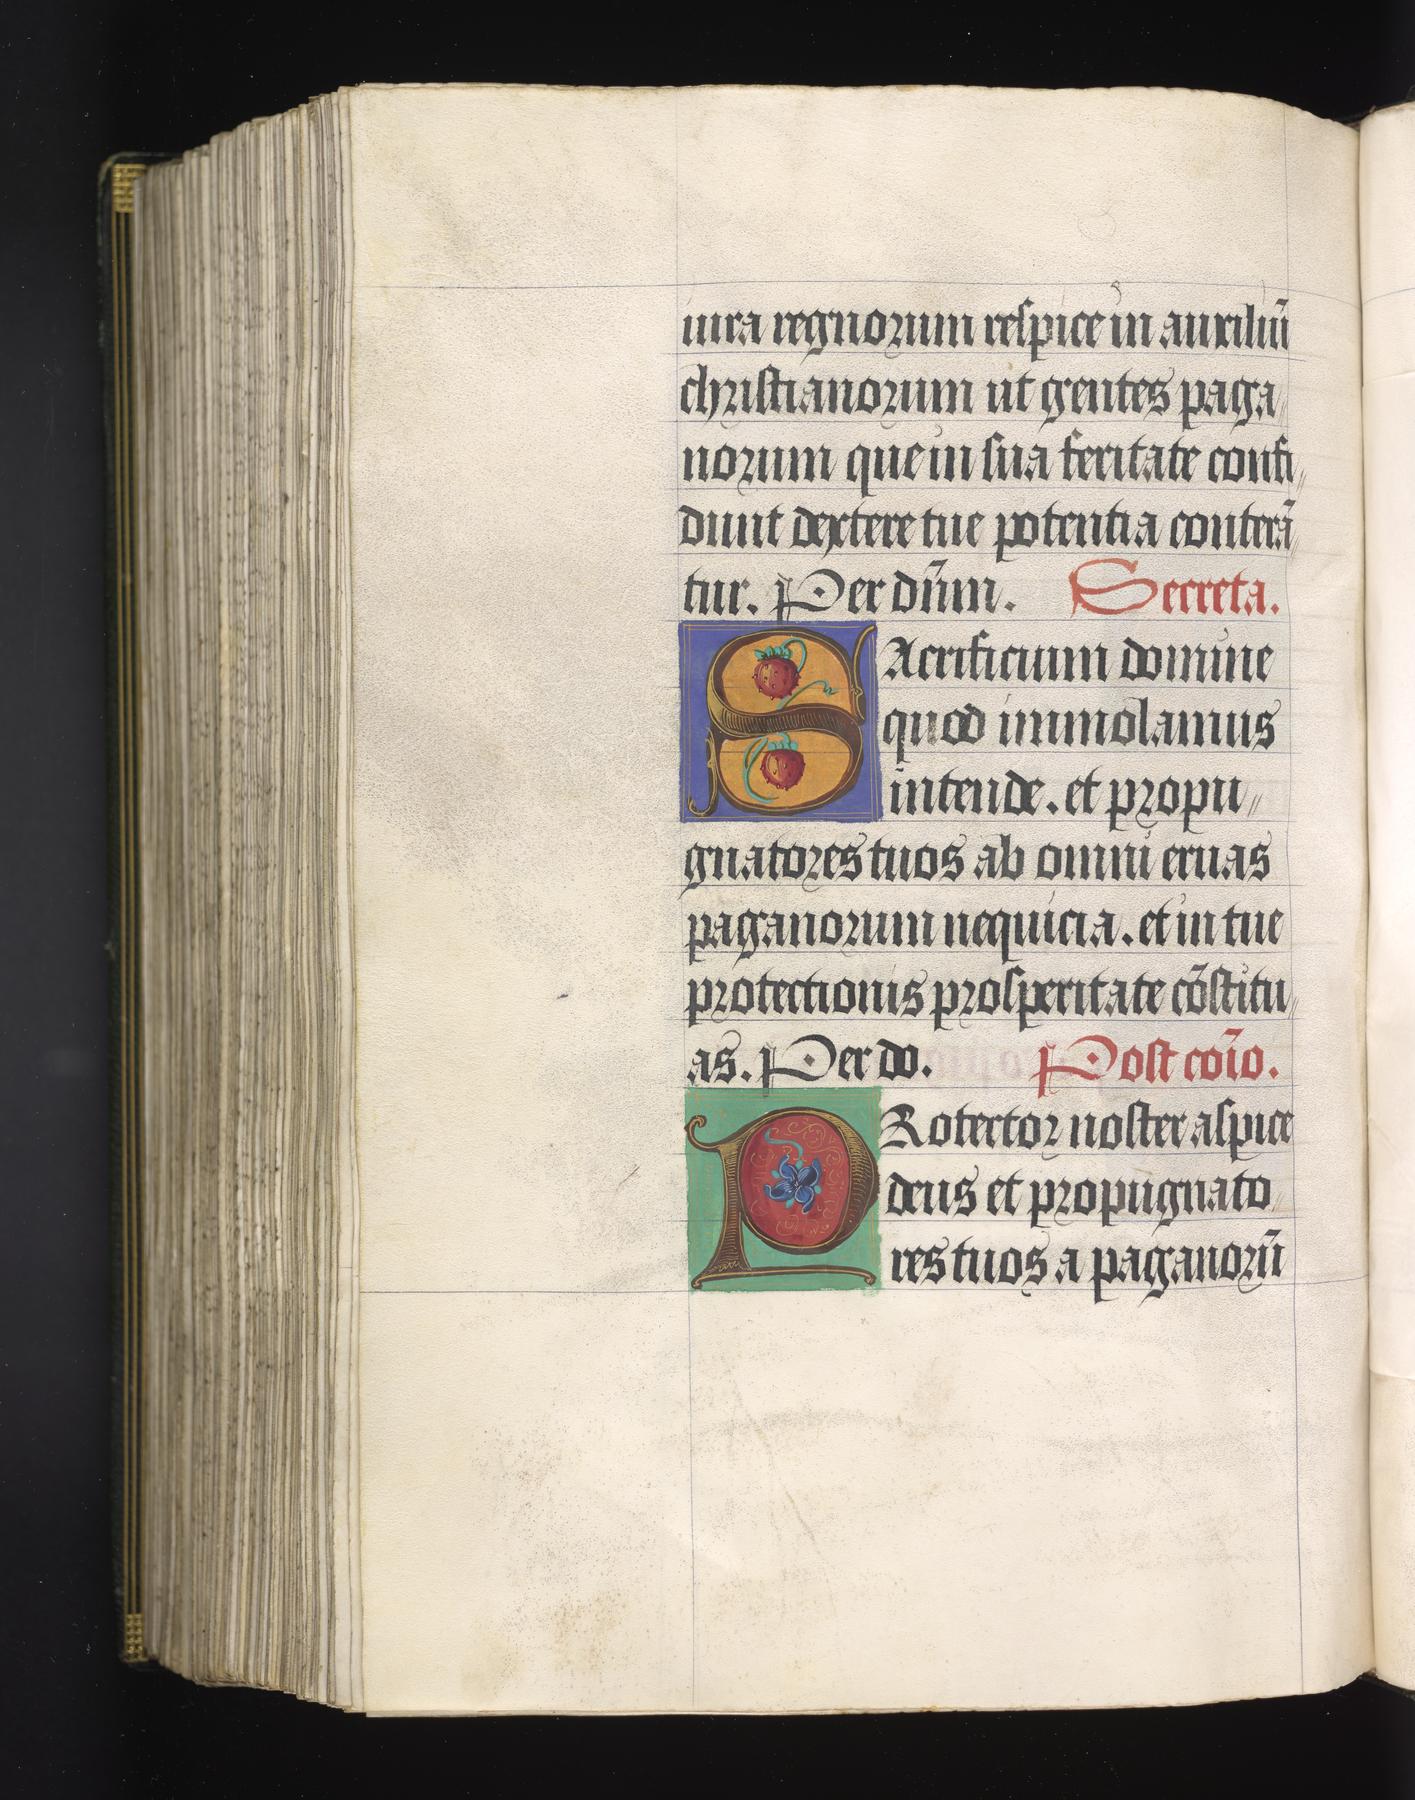 iura regnorum respice in auxiliū
christianorum ut gentes paga
norum que in sua feritate confi
dunt dextere tue potentia conterā
tur. Per dn̄m. Secreta.
SAcrificium domine
quod immolamus
intende. et propu
gnatores tuos ab omni eruas
paganorum nequicia. et in tue
protectionis prosperitate cōstitu
as. Per do. Post cōio.
PRotector noster aspice
deus et propugnato
res tuos a paganorū